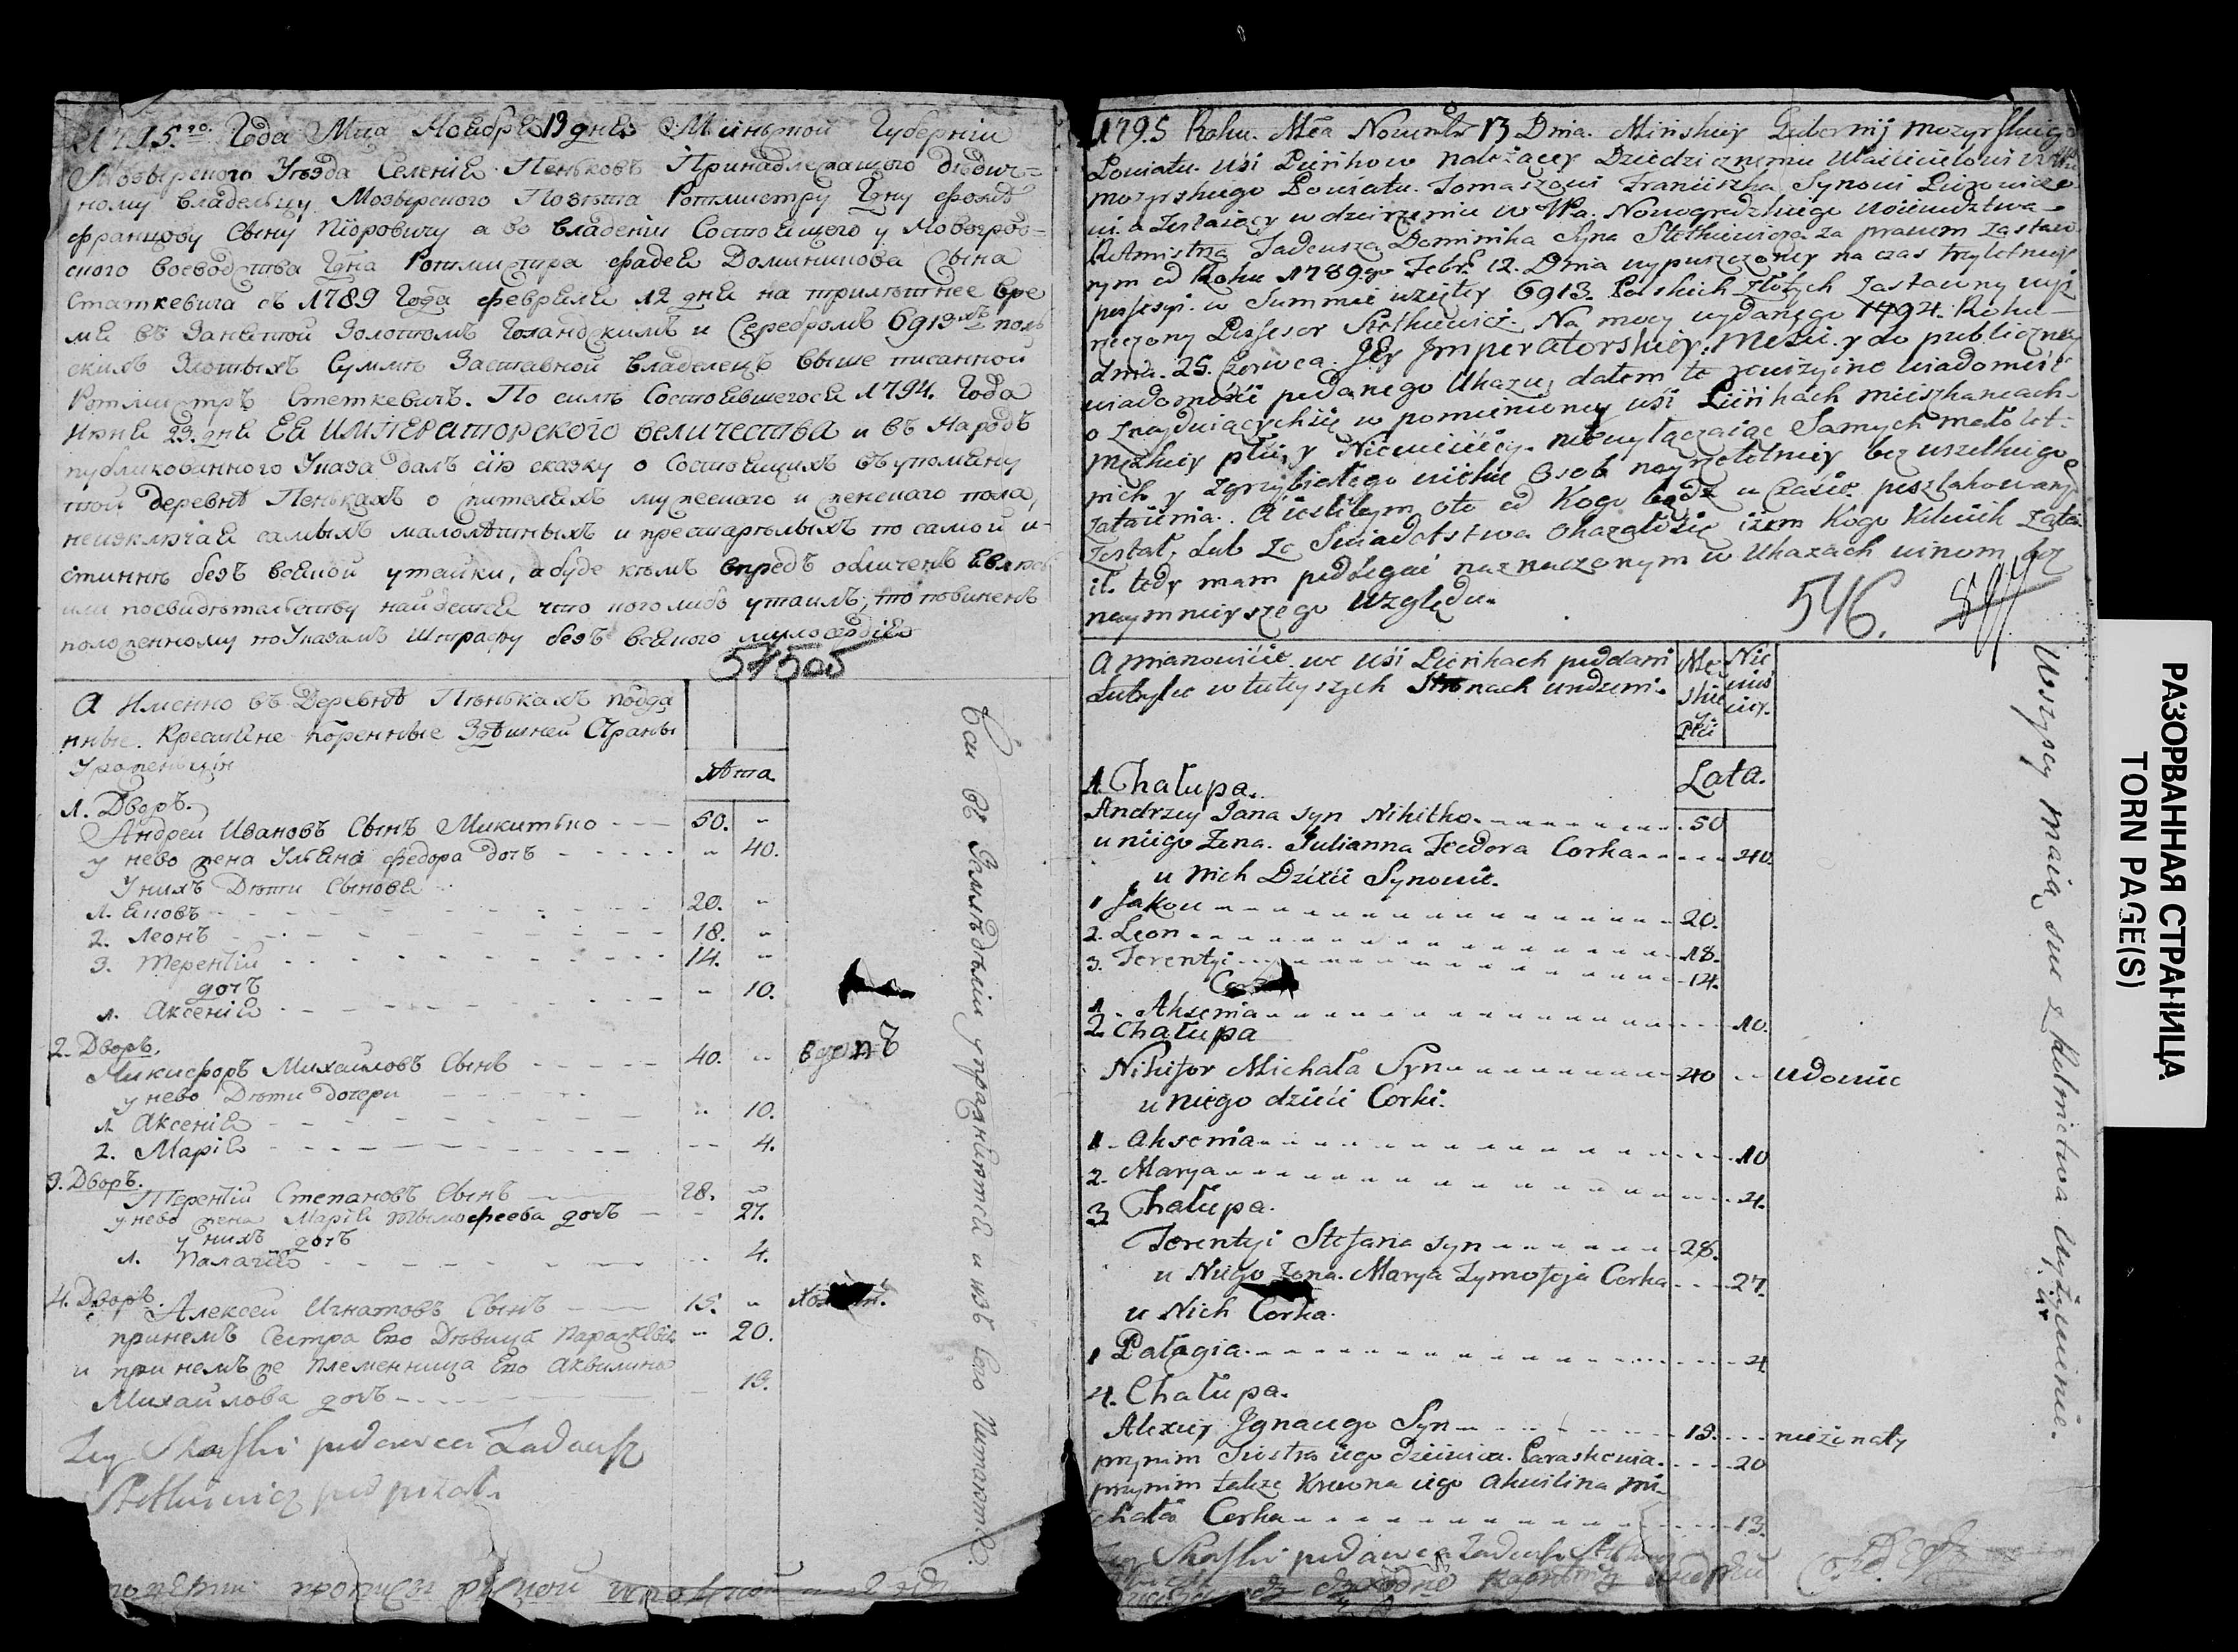 1795.го Года Мца Ноабра 13 дна Минской Губернии
Мозырского Уезда Селениа Пеньковъ Принадлежащого дедич=
ному владельцу Мозырского Повета Ротмистру Гдну Фоме
Францову Сыну Піоровичу а во владении Состоащого у Новогрод=
ского воеводства Гдна Ротмистра Фадеа Доминикова Сына
Статкевича съ 1789 Года февраля 12 дна на трилетнее вре
ма въ Занатой Золотомъ Голандскимъ и Серебромъ 6913хъ поль
скихъ Злотыхъ Сумме Заставной владелецъ выше писанной
Ротмистръ Стеткевичъ. По силе Состоавшегося 1794. Года
Июна 23. дна Еа ИМПЕРАТОРСКОГО величества и въ Народъ
публикованного Указа далъ сію сказку о Состоащихъ въ упоману
той деревне Пенькахъ о жителахъ мужескаго и женскаго пола,
неизключаа самыхъ малолетныхъ и престарелыхъ по самой и-
стинне безъ всакой утайки, а буде кемъ впредъ обличенъ
или по свидетальству найдетса что кого либо утаилъ, то повиненъ
положенному по Указамъ Штрафу безъ всакого милосердіа
51505
А Именно въ Деревне Пенькахъ подда
нные. Крестьяне коренные Здешней Страны
Уроженьцы
Лета
1. Дворъ.
Андрей Ивановъ Сынъ Микитько 50. "
у нево жена Ульана федора дочъ " 40.
У нихъ Дети Сыновьа
1. Аковъ 20. "
2. Леонъ 18. "
3. Терентій 14. "
дочъ
1. Аксеніа " 10.
2. Дворъ.
Микифоръ Михайловъ Сынъ 40. " вдовъ
у нево Дети дочери
1. Аксеніа " 10.
2. Маріа " 4.
3. Дворъ.
Терентій Степановъ Сынъ 28. "
у нево жена Маріа Тымофеева дочъ " 27.
у нихъ дочъ
1. Палагіа " 4.
4. Дворъ.
Алексей Игнатовъ Сынъ 15. "
принемъ Сестра Его Девица Параскевіа " 20.
и при немъ же племенница Его Аквилина
Михайлова дочъ 13.
Tey Skaski podawca Tadeusz
Stetkiewicz podpisał.
Вси въ Земледеліи упражняютса и изъ Его Питаютса.
1795 Roku. Mca Nowemb 13 Dnia. Mińskiey Gubernij mozyrskiego
Powiatu. Wsi Pieńkow należącey Dziedzicznemu Właścicielowi
mozyrskiego Powiatu. Tomaszowi Franciszka Synowi Piorowiczo
wi. a Zostaiący w dzierżeniu w Wa. Nowogrodzkiego woiewodztwa
Rotmistrza Tadeusza Dominika Syna Stetkiewicza za prawem zastaw
nym od Roku 1789go Febr. 12. Dnia wypuszczoney na czas trzyletniey
possesyi. w Summie wziętey 6913. Polskich Złotych Zastawny wyż
rzeczony Possesor Stetkiewicz. Na mocy wydanego 1794. Roku
dnia. 23. Czerwca. Jey Imperatorskiey: Mości. y do publiczney
wiadomości podanego Ukazu, dałem tę rewizyine wiadomość
o znayduiących się w pomienioney wsi Pieńkach mieszkancach
męzkiey płci, y Niewieściey. niewyłączaiąc Samych mało let:
nich y zgrzybiałego wieku Osob nayrzetelniey bez wszelkiego
Zataienia. A iesliбym oto od Kogo bądz w czasie poszlakowany
został, lub ze Świadetstwa okazałosie iżem Kogo Kolwiek Zata
ił. tedy mam podlegać naznaczonym w Ukazach winom bez
naymnieyszego Względu.
546.
A mianowicie we wsi Pieńkach poddani
Lutbylce w tuteyszych Stronach urodzeni.
Męskiey Płci
Niewieściey.
Lata.
1 Chałupa.
Andrzey Jana Syn Nikitko 50
u niego Żona. Julianna Teodora Corka 40.
u nich Dzieci Synowie.
1 Jakow 20.
2. Leon 18.
3. Terentyi 14.
1. Aksenia 10.
2. Chałupa
Nikifor Michała Syn 40 wdowiec
u niego dzieci Corki.
1. Aksenia 10
2. Marya 4.
3 Chałupa.
Terentyi Stefana syn 28.
u Niego Żona. Marya Tymofeja Corka 27.
u Nich Corka.
1 Palagia 4
4. Chałupa.
Alexiey Ignacego Syn 15. nieżonaty
przynim Siostra iego dziewica. Paraskewia. 20
przynim także Krewna iego Akwilina Mi
chała Corka 13.
Tey Skaski podawca Tadeusz
Wszyscy maią swe z Rolnictwa wyżywienie.
РАЗОРВАННАЯ СТРАНИЦА
TORN PAGE(S)